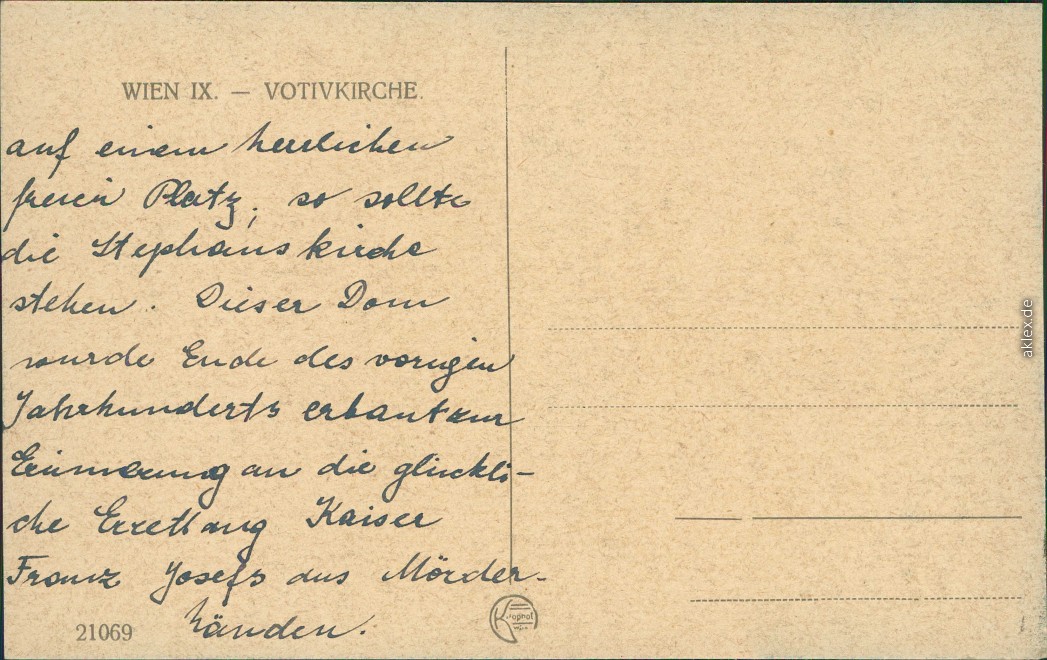 WIEN IX. — VOTIVKIRCHE.
auf einem herrlichen
freien Platz, so sollte
die Stephanskirche
stehen. Dieser Dom
wurde Ende des vorigen
Jahrhunderts erbaut zur
Erinnerung an die glückli-
che Errettung Kaiser
Franz Josefs aus Mörder-
händen.
21069
Wien
aklex.de